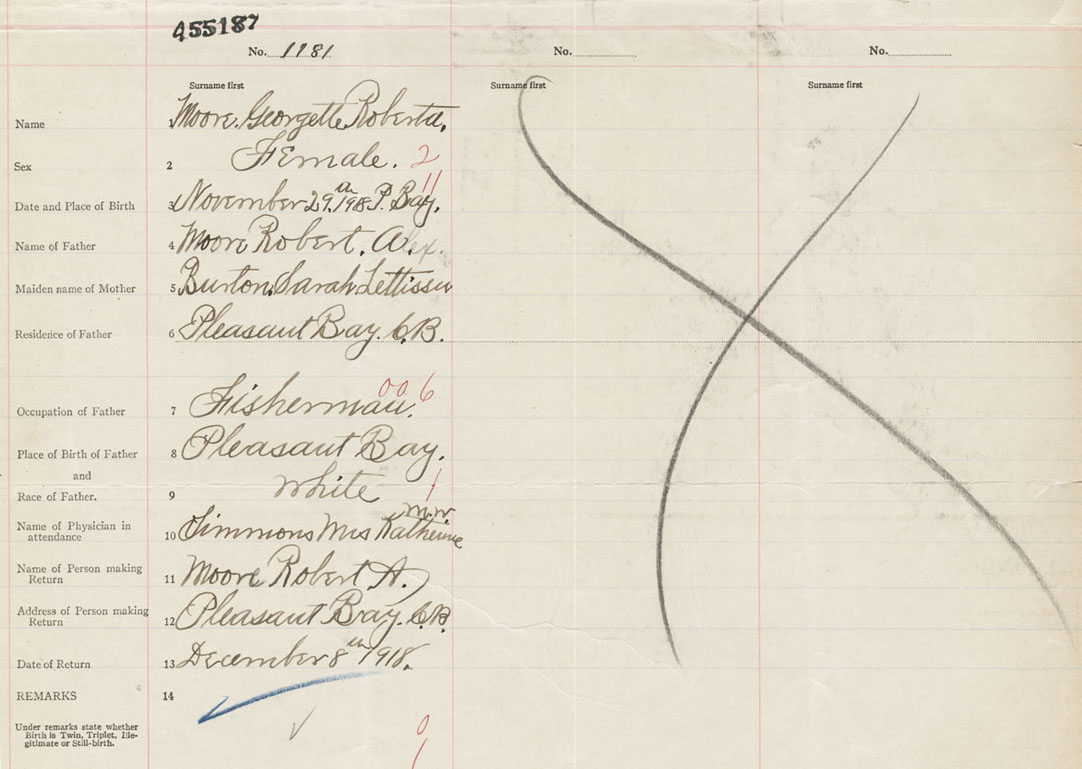 455187
No. 1181 No. No.
Surname first Surname first Surname first
Name Moore. Georgette Roberta.
Sex 2 Female. 2
11
Date and Place of Birth 3 November 29th. 1918 P. Bay.
Name of Father 4 Moore Robert. Alex.
Maiden name of Mother 5 Burton. Sarah Lettissu
Residence of Father 6 Pleasant Bay. C.B.
006
Occupation of Father 7 Fisherman.
Place of Birth of Father 8 Pleasant Bay.
and
Race of Father. 9 White 1
M.W.
Name of Physician in
attendance 10 Timmons Mrs Katherine
Name of Person making
Return 11 Moore Robert A.
Address of Person making
Return 12 Pleasant Bay. C.B.
Date of Return 13 December 8th 1918.
REMARKS 14
Under remarks state whether
Birth is Twin, Triplet, Ille-
gitimate or Still-birth.
0
1